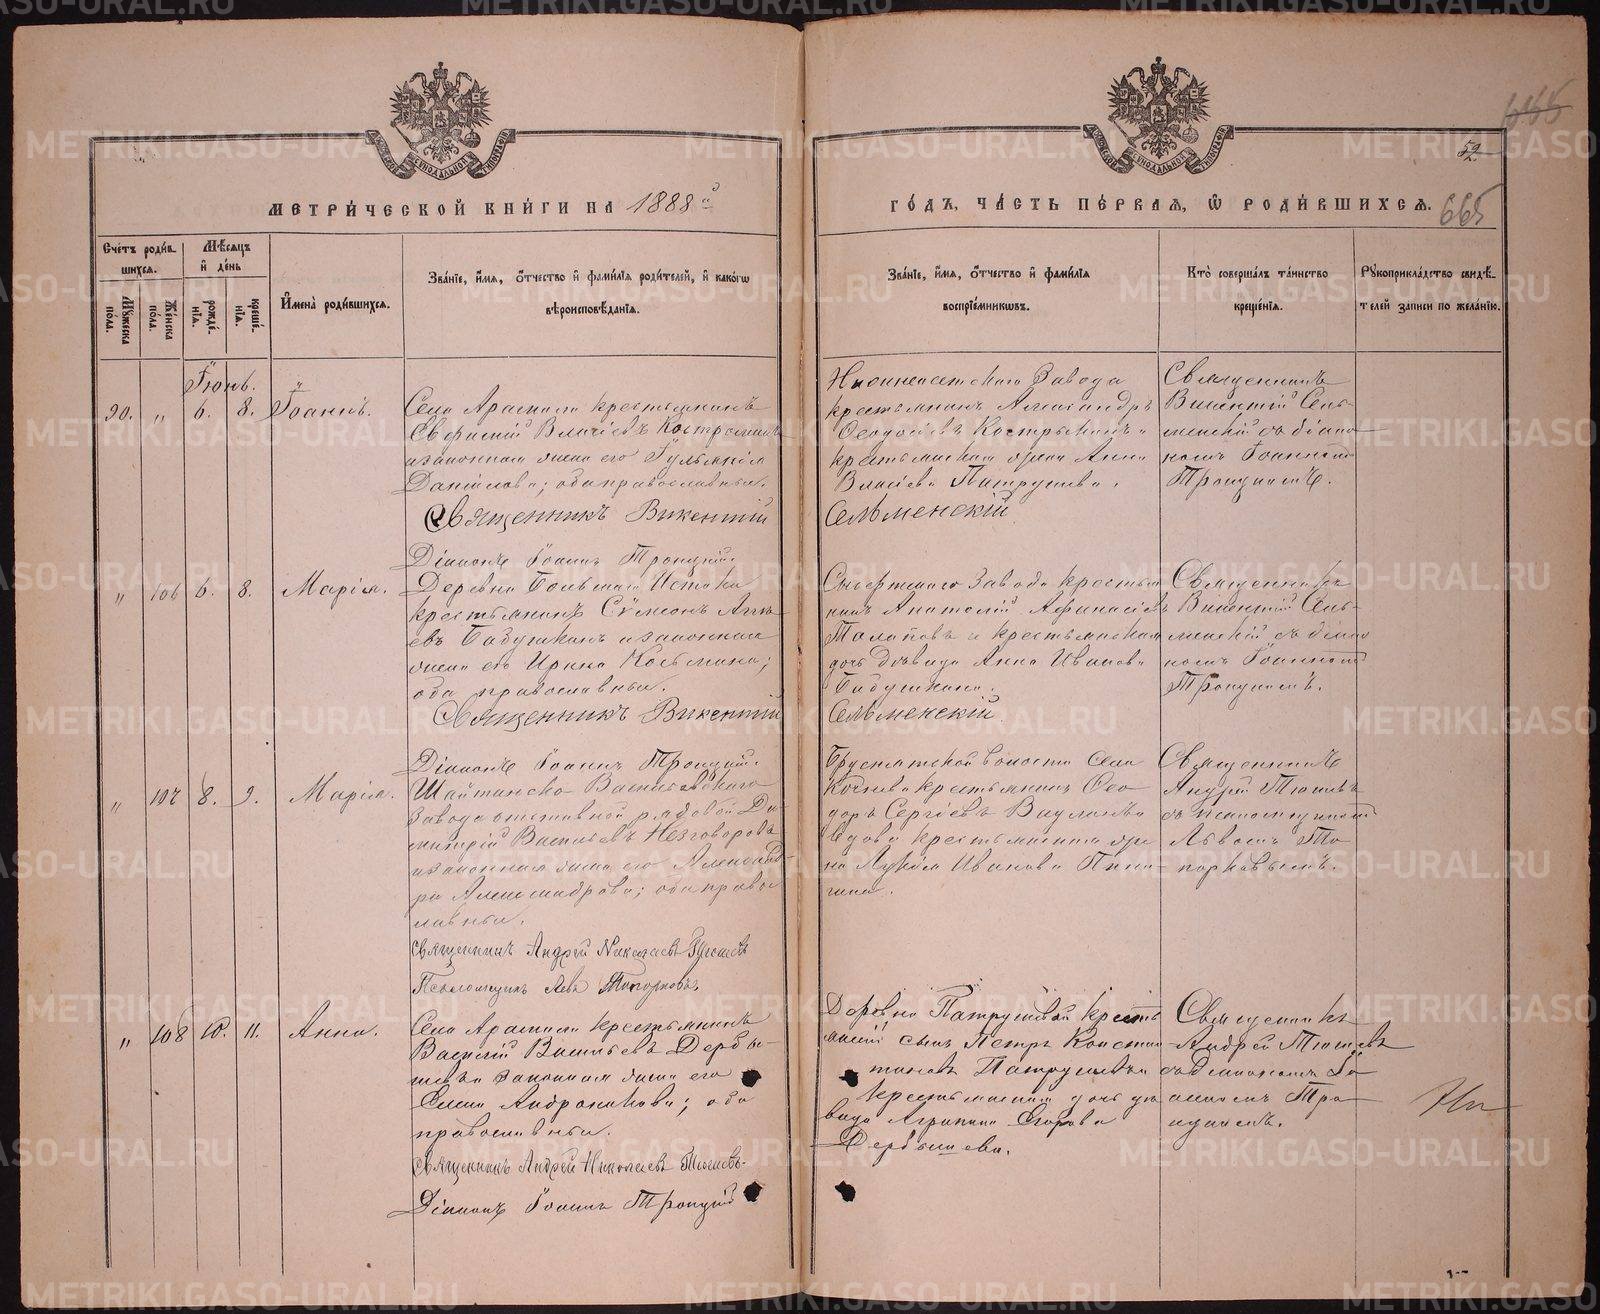 МЕТРИ́ЧЕСКОЙ КНИ́ГИ НА 1888 й
ГО́ДЪ, ЧА́СТЬ ПЕ́РВАЯ, Ѡ РОДИ́ВШИХСЯ.
52
665
Сче́тъ роди́в-
шихся.
Му́жеска
по́ла.
Же́нска
по́ла.
Мѣ́сяцъ
и́ де́нь
рожде́-
нїя.
креще́-
нїя.
И҆мена̀ роди́вшихся.
Зва́нїе, и҆́мя, о҆́тчество и҆ фами́лїя роди́телей, и҆ како́гѡ
вѣроисповѣ́данїя.
Зва́нїе, и҆́мя, о҆́тчество и҆ фами́лїя
воспрїе́мникѡвъ.
Кто̀ соверша́лъ та́инство
креще́нїя.
Рꙋкоприкла́дство свидѣ́-
телей записи по жела́нїю.
Іюнь.
90. " 6. 8. Іоаннъ.
Села Арамили крестьянинъ
Власіевъ Костромин
и законная жена его Іуліанія
Данілова; оба православныи.
Священникъ Викентій
Діаконъ Іоаннъ Троицкий.
Завода
крестьянинъ Александръ
Ѳеодосіевъ
крестьянская жена Анна
Власіева Патрушева.
Сельменскій
Священникъ
Викентій Сель-
менскій съ діако
номъ Іоанномъ
Троицкимъ.
" 106 6. 8. Марія.
Деревни Большой Истокъ
крестьянинъ Сѵмеонъ
евъ Бабушкинъ и законная
жена его Ирина Косьмина;
оба православныи.
Священникъ Викентій
Діаконъ Іоаннъ Троицкий.
Сысертскаго Завода крестья
нинъ Анатолій Афанасіевъ
и крестьянская
дочь дѣвица Анна Иванова
Бабушкина.
Сельменскій
Священникъ
Викентій Сель-
менскій съ діако
номъ Іоанномъ
Троицкимъ.
" 107 8. 9. Марія.
Шайтанско Васильевскаго
Завода отставной рядовой Ди-
митрій Васильевъ Незговоровъ
и законная жена его Александ-
ра Александрова; оба право
славныи.
Священникъ Андрей Николаевъ Тюшевъ
Псаломщикъ Левъ Топорковъ.
волости Села
крестьянинъ Ѳео
доръ Сергіевъ
и крестьянская же
на Лукія Иванова Пина
гина.
Священникъ
Андрей Тюшевъ
съ псаломщикомъ
Львомъ То
порковымъ.
" 108 10. 11. Анна.
Села Арамили крестьянинъ
Василій Васильевъ Дербы-
шевъ и законная жена его
Елена Андроникова; оба
православныи.
Священникъ Андрей Николаевъ Тюшевъ.
Діаконъ Іоаннъ Троицкій
Деревни Патрушевой кресть
янскій сынъ Петръ Констан
тиновъ Патрушевъ и
крестьянская дочь дѣ
вица Агрипина Егорова
Дербышева.
Священникъ
Андрей Тюшевъ
съ Діакономъ Іо
анномъ Тро
ицкимъ.